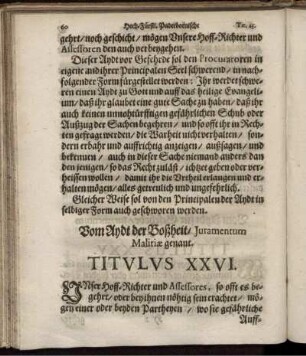 60 Hoch-Fürstl. Paderbornische Tit. 25.
gehrt / noch geschicht / mögen Unsere Hoff-Richter und
Assessoren den auch vorbeygehen.
Dieser Aydt vor Geschede sol den Procuratoren in
eigene und ihrer Principalen Seel schwerend / in nach-
folgender Form fürgestellet werden: Ihr werdet schwe-
ren einen Aydt zu Gott und auff das heilige Evangeli-
um / daß ihr glaubet eine gute Sache zu haben / daß ihr
auch keinen unnohtürfftigen gefährlichen Schub oder
Auffzug der Sachen begehren / und so offt ihr in Rech-
ten gefragt werden / die Warheit nicht verhalten / son-
dern erbahr und auffrichtig anzeigen / außsagen / und
bekennen / auch in dieser Sache niemand anders dan
den jenigen / so das Recht zuläst / ichtzet geben oder ver-
heissen wollen / damit ihr die Urtheil erlangen und er-
halten mögen / alles getreulich und ungefehrlich.
Gleicher Weise sol von den Principalen der Aydt in
selbiger Form auch geschworen werden.
Vom Aydt der Boßheit / Juramentum
Malitiæ genant.
TITULUS XXVI.
UNser Hoff-Richter und Assessores, so offt es be-
gehrt / oder bey ihnen nöhtig sein erachtet / mö-
gen einer oder beyden Partheyen / wo sie gefährliche
Auff-